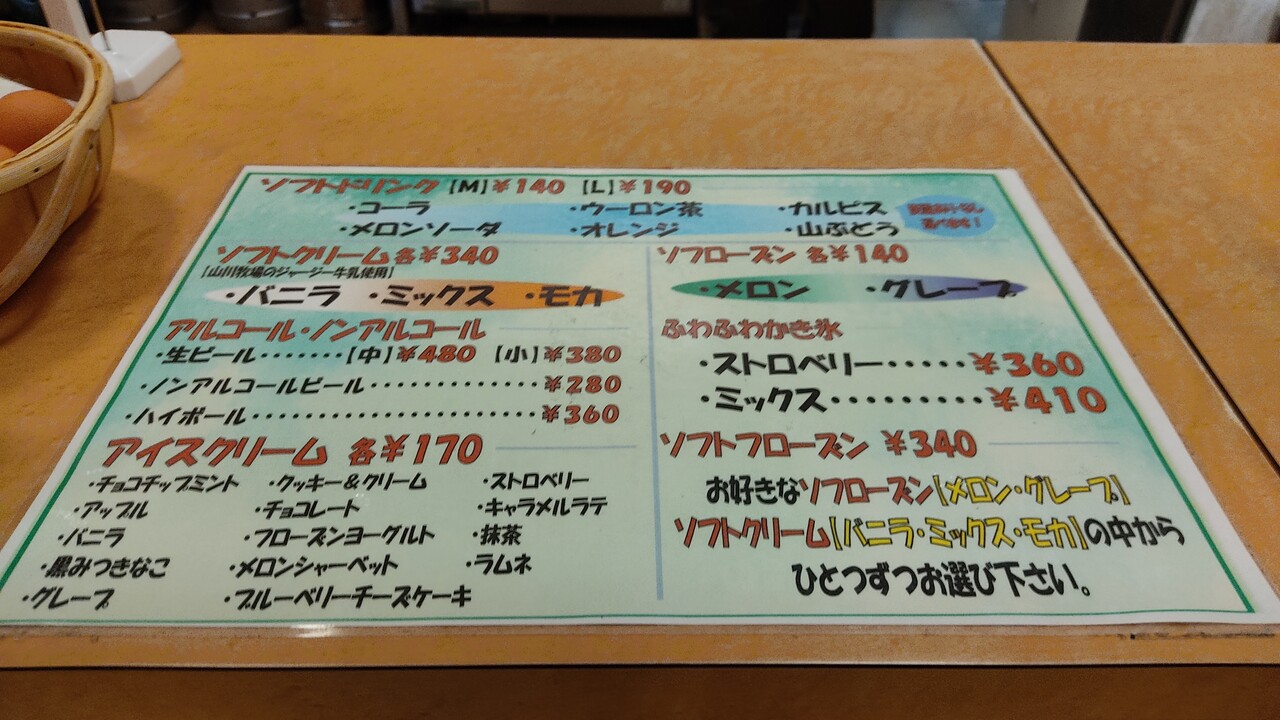 ソフトドリンク【M】¥140 【L】¥190
・コーラ ・ウーロン茶 ・カルピス
・メロンソーダ ・オレンジ ・山ぶどう
ソフトクリーム各¥340
【山川牧場のジャージー牛乳使用】
・バニラ ・ミックス ・モカ
アルコール・ノンアルコール
・生ビール・・・・・・・【中】¥480 【小】¥380
・ノンアルコールビール・・・・・・・・・・・・・¥280
・ハイボール・・・・・・・・・・・・・・・・・・・・・・・¥360
アイスクリーム 各¥170
・チョコチップミント ・クッキー&クリーム ・ストロベリー
・アップル ・チョコレート ・キャラメルラテ
・バニラ ・フローズンヨーグルト ・抹茶
・黒みつきなこ ・メロンシャーベット ・ラムネ
・グレープ ・ブルーベリーチーズケーキ
ソフローズン 各¥140
・メロン ・グレープ
ふわふわかき氷
・ストロベリー・・・・・¥360
・ミックス・・・・・・・・・¥410
ソフトフローズン ¥340
お好きなソフローズン【メロン・グレープ】
ソフトクリーム【バニラ・ミックス・モカ】の中から
ひとつずつお選び下さい。